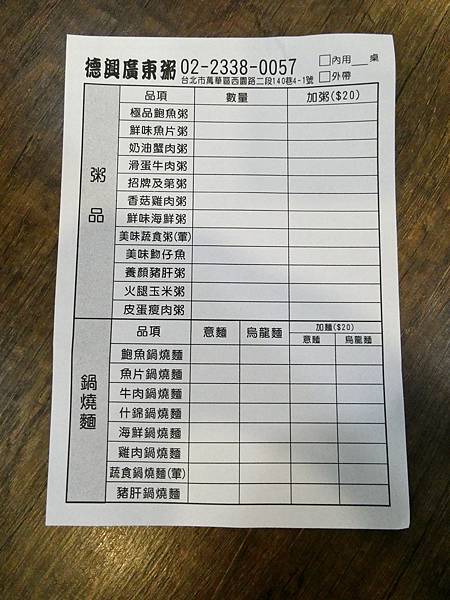 德興廣東粥 02-2338-0057 □內用___桌
台北市萬華區西園路二段140巷4-1號 □外帶
粥品
品項 數量 加粥($20)
極品鮑魚粥
鮮味魚片粥
奶油蟹肉粥
滑蛋牛肉粥
招牌及第粥
香菇雞肉粥
鮮味海鮮粥
美味蔬食粥(葷)
美味魩仔魚
養顏豬肝粥
火腿玉米粥
皮蛋瘦肉粥
鍋燒麵
品項 意麵 烏龍麵 加麵($20)
意麵 烏龍麵
鮑魚鍋燒麵
魚片鍋燒麵
牛肉鍋燒麵
什錦鍋燒麵
海鮮鍋燒麵
雞肉鍋燒麵
蔬食鍋燒麵(葷)
豬肝鍋燒麵